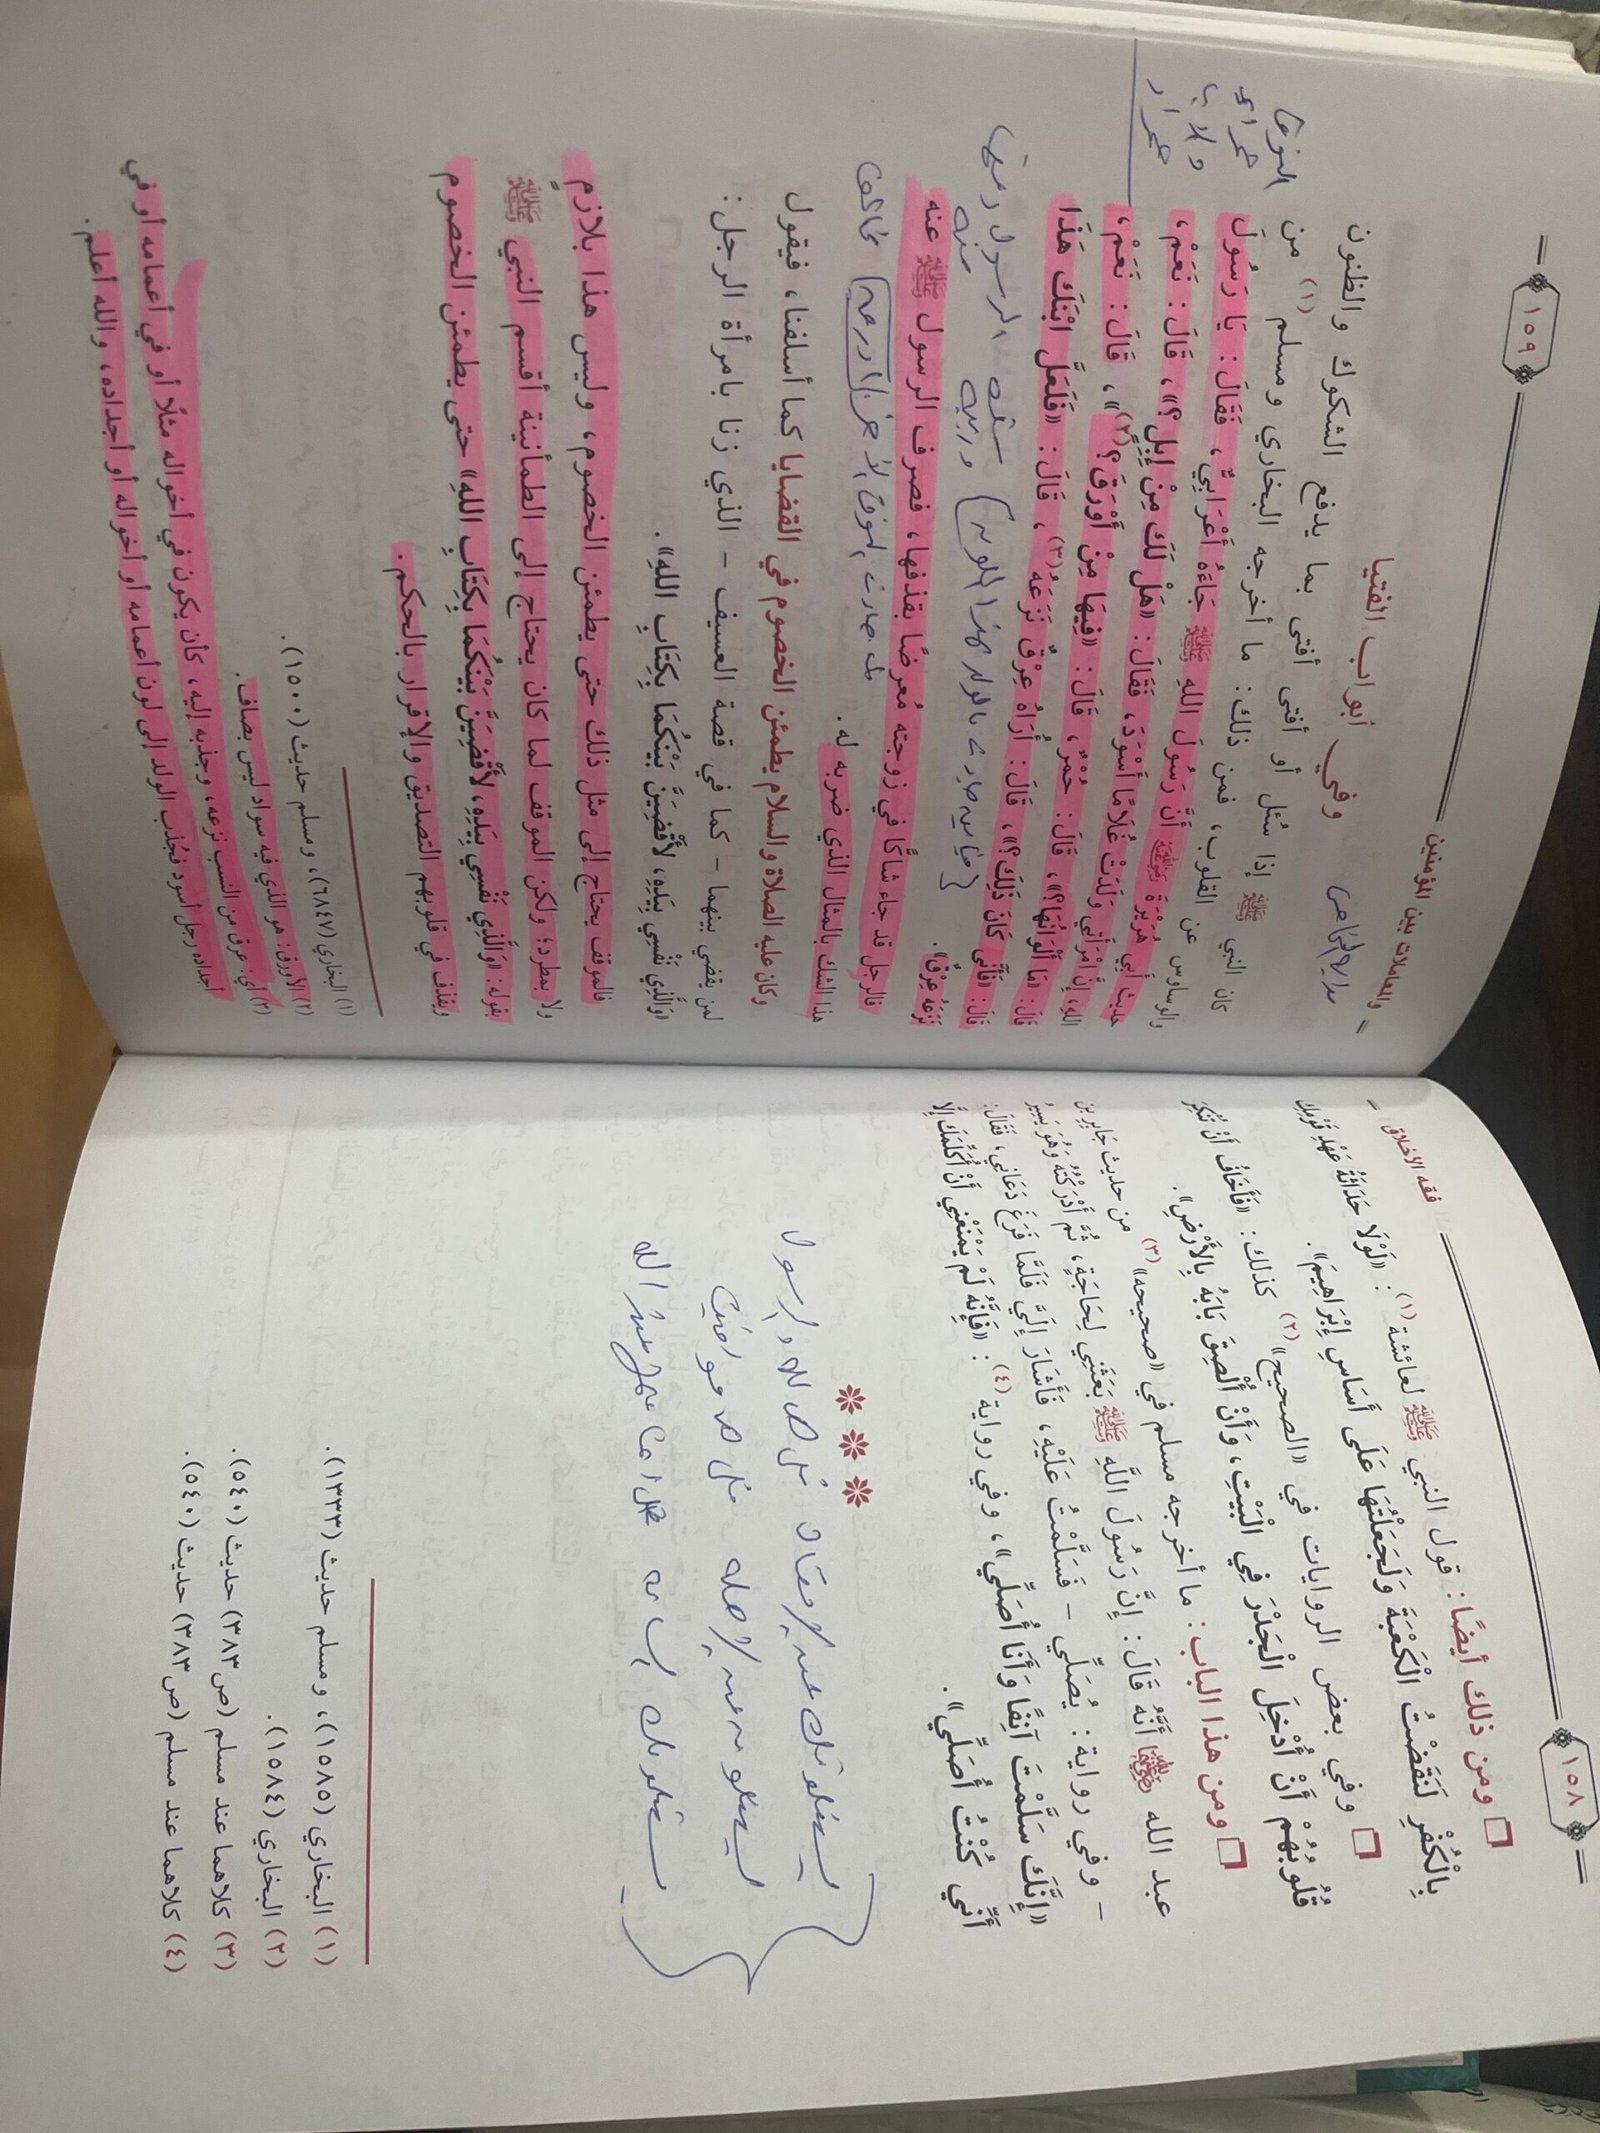 ١٥٨
فقه الأخلاق
ومن ذلك أيضًا: قول النبي ﷺ لعائشة (١): «لَوْلَا حَدَاثَةُ عَهْدِ قَوْمِكِ
بِالْكُفْرِ لَنَقَضْتُ الْكَعْبَةَ وَلَجَعَلْتُهَا عَلَى أَسَاسِ إِبْرَاهِيمَ».
وفي بعض الروايات في «الصحيح» (٢) كذلك: «فَأَخَافُ أَنْ تُنْكِرَ
قُلُوبُهُمْ أَنْ أُدْخِلَ الْجَدْرَ فِي الْبَيْتِ، وَأَنْ أُلْصِقَ بَابَهُ بِالْأَرْضِ».
ومن هذا الباب: ما أخرجه مسلم في «صحيحه» (٣) من حديث جَابِرِ بْنِ
عبد الله رضي الله عنهما أَنَّهُ قَالَ: إِنَّ رَسُولَ اللَّهِ ﷺ بَعَثَنِي لِحَاجَةٍ، ثُمَّ أَدْرَكْتُهُ وَهُوَ يَسِيرُ
- وفي رواية: يُصَلِّي - فَسَلَّمْتُ عَلَيْهِ، فَأَشَارَ إِلَيَّ فَلَمَّا فَرَغَ دَعَانِي، فَقَالَ:
«إِنَّكَ سَلَّمْتَ آنِفًا وَأَنَا أُصَلِّي»، وفي رواية (٤): «فَإِنَّهُ لَمْ يَمْنَعْنِي أَنْ أُكَلِّمَكَ إِلَّا
أَنِّي كُنْتُ أُصَلِّي».
(١) البخاري (١٥٨٥)، ومسلم حديث (١٣٣٣).
(٢) البخاري (١٥٨٤).
(٣) كلاهما عند مسلم (ص٣٨٣) حديث (٥٤٠).
(٤) كلاهما عند مسلم (ص٣٨٣) حديث (٥٤٠).
والمعاملات بين المؤمنين
١٥٩
وفي أبواب الفتيا
كان النبي ﷺ إذا سُئل أو أفتى أفتى بما يدفع الشكوك والظنون
والوساوس عن القلوب، فمن ذلك: ما أخرجه البخاري ومسلم (١) من
حديث أَبِي هُرَيْرَةَ رضي الله عنه أَنَّ رَسُولَ اللهِ ﷺ جَاءَهُ أَعْرَابِيٌّ، فَقَالَ: يَا رَسُولَ
اللهِ، إِنَّ امْرَأَتِي وَلَدَتْ غُلَامًا أَسْوَدَ، فَقَالَ: «هَلْ لَكَ مِنْ إِبِلٍ؟»، قَالَ: نَعَمْ،
قَالَ: «مَا أَلْوَانُهَا؟»، قَالَ: حُمْرٌ، قَالَ: «فِيهَا مِنْ أَوْرَقَ؟ (٢)»، قَالَ: نَعَمْ،
قَالَ: «فَأَنَّى كَانَ ذَلِكَ؟»، قَالَ: أُرَاهُ عِرْقٌ نَزَعَهُ (٣)، قَالَ: «فَلَعَلَّ ابْنَكَ هَذَا
نَزَعَهُ عِرْقٌ».
فالرجل قد جاء شاكًّا في زوجته مُعرضًا بقذفها، فصرف الرسول ﷺ عنه
هذا الشك بالمثال الذي ضربه له.
وكان عليه الصلاة والسلام يطمئن الخصوم في القضايا كما أسلفنا، فيقول
لمن يقضي بينهما - كما في قصة العسيف - الذي زنا بامرأة الرجل:
«وَالَّذِي نَفْسِي بِيَدِهِ، لَأَقْضِيَنَّ بَيْنَكُمَا بِكِتَابِ اللهِ».
فالموقف يحتاج إلى مثل ذلك حتى يطمئن الخصوم، وليس هذا بلازمٍ
ولا بمطرد؛ ولكن الموقف لما كان يحتاج إلى الطمأنينة أقسم النبي ﷺ
بقوله: «وَالَّذِي نَفْسِي بِيَدِهِ، لَأَقْضِيَنَّ بَيْنَكُمَا بِكِتَابِ اللهِ» حتى يطمئن الخصوم
ويقذف في قلوبهم التصديق والإقرار بالحكم.
(١) البخاري (٦٨٤٧)، ومسلم حديث (١٥٠٠).
(٢) الأورق: هو الذي فيه سواد ليس بصاف.
(٣) أي: عرق من النسب نزعه، وجذبه إليه، كأن يكون في أخواله مثلًا أو في أعمامه أو في
أجداده رجل أسود فجُذب الولد إلى لون أعمامه أو أخواله أو أجداده، والله أعلم.